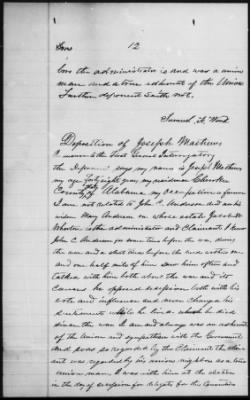 12
the administrator is and was a union
man and a true adherent of the Union
Further deponent saith not.
Samuel K. Wood
Deposition of Joseph Mathews
In answer to the first General Interrogatory
the Deponent says my name is Joseph Mathews
my age forty eight years, my residence Cherokee
County of Alabama, my occupation a farmer
I am not related to John C. Anderson dec'd or his
widow Mary Anderson on whose estate Jacob
is the administrator and Claimant I knew
John C. Anderson for some time before the war, during
the war and a short time before he died within one
and one half miles of him saw him often and
talked with him both about the war and its
causes he opposed secession both with his
vote and influence and never changed his
sentiments while he lived he died
since the war I am and always was an adherent
of the Union and sympathized with the Government
and was so regarded by the Claimant. The
was regarded by his union neighbors as a true
union man. I was with him at the election
in the day of secession for delegate for the Convention